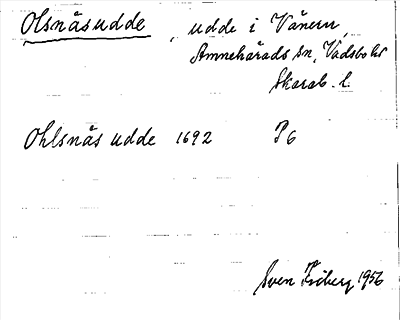 Olsnäsudde, udde i Vänern,
Amnehärads sn, Vadsbo hd
Skarab. l.
Ohlsnäs udde 1692 P6
Sven Friberg 1956